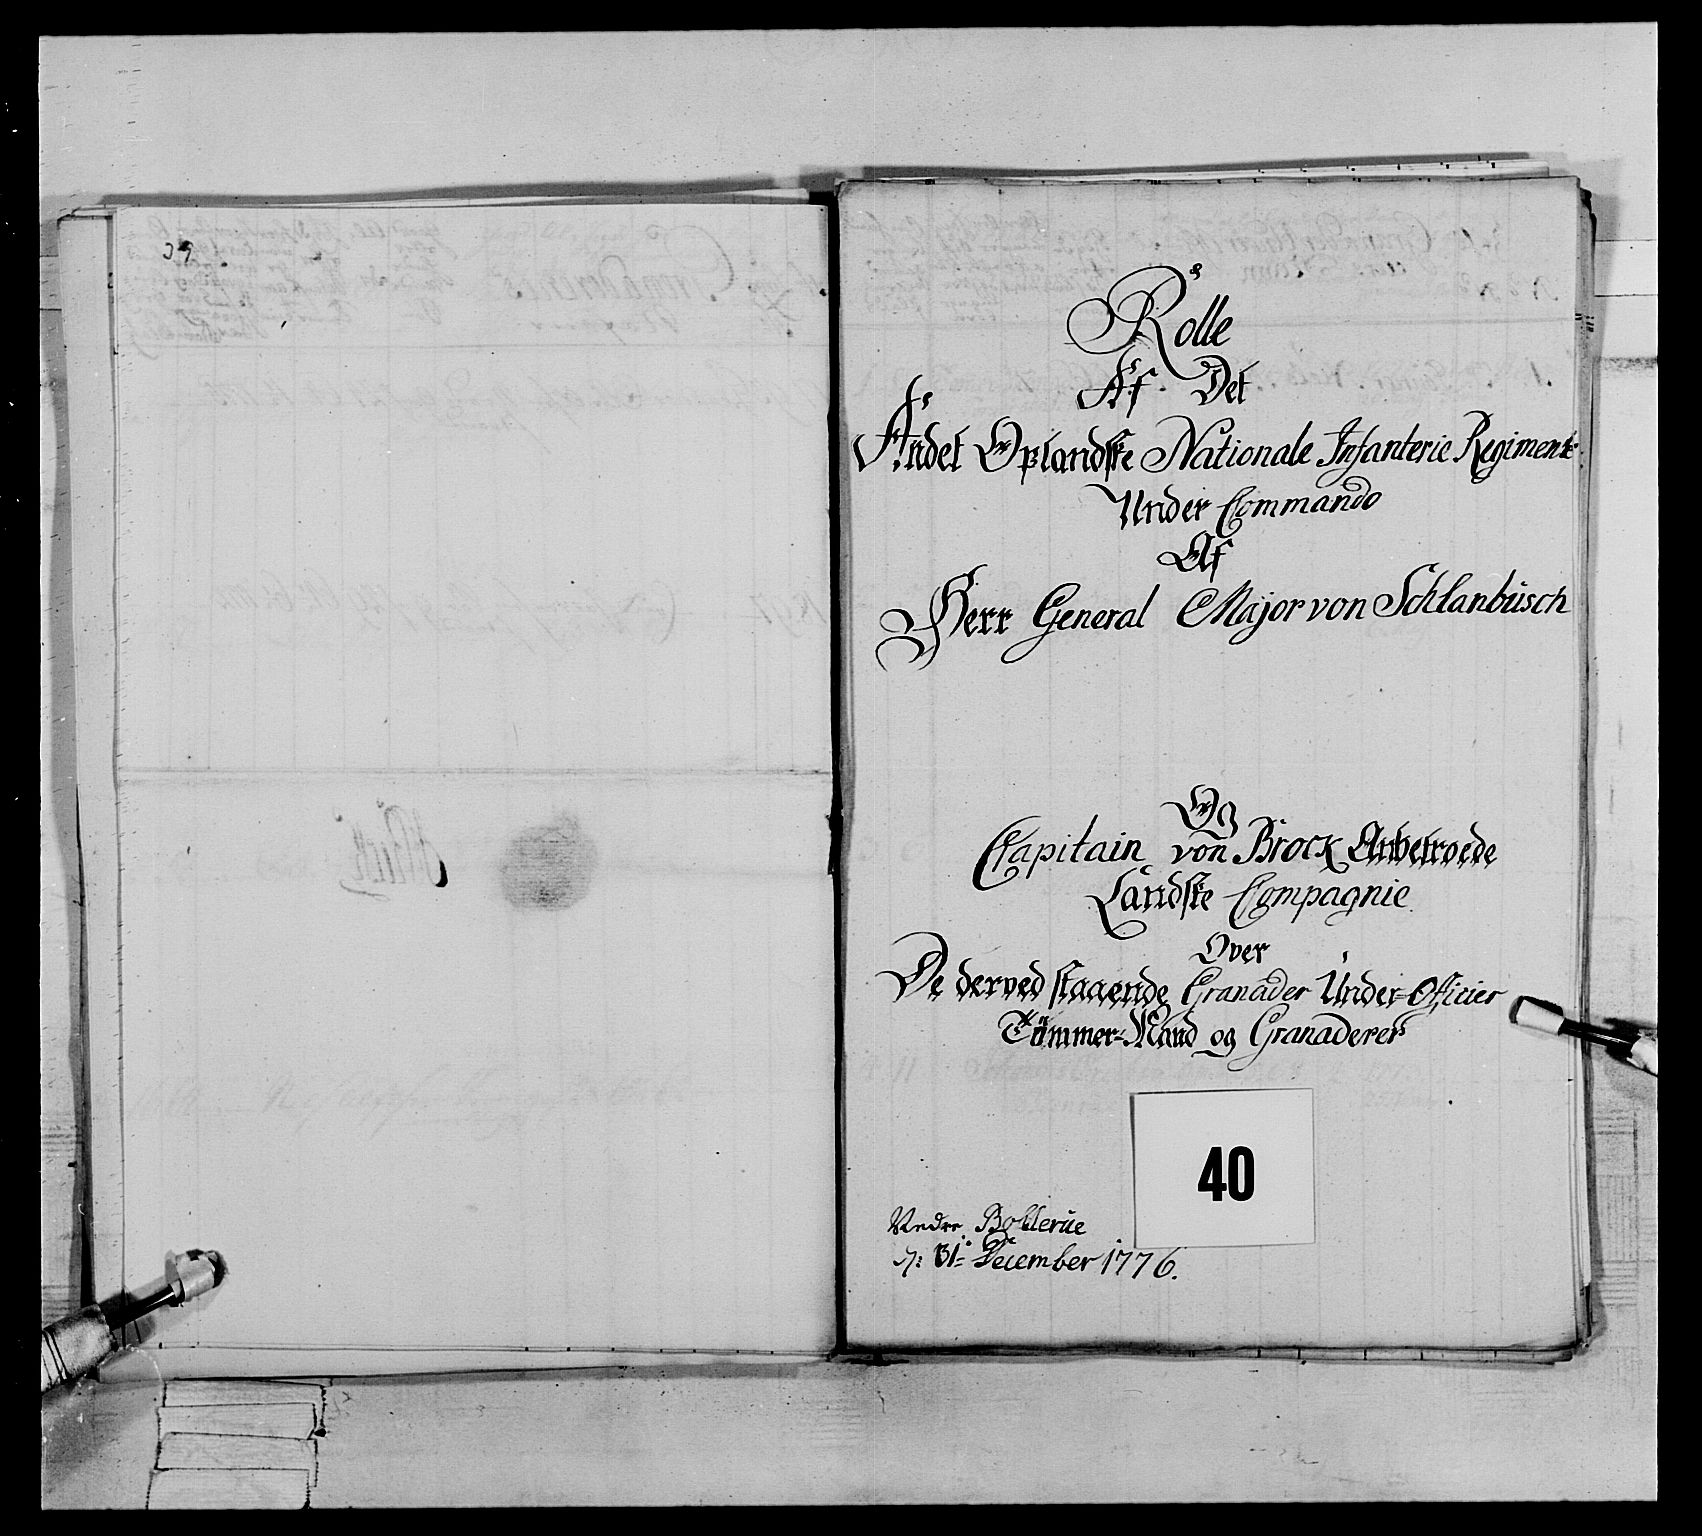 39.
Rolle
Af Det
Andet Oplandske Nationale Infanterie Regiment
Under Commando
Af
Herr General Major von Schlanbüsch
Og
Capitain von Brock Anbetroede
Landske Compagnie
Over
De derved staaende Granader Under-Officier
Tömmer-Mand og Granaderer
40
Nedre Bollerüe
d: 31= December 1776.